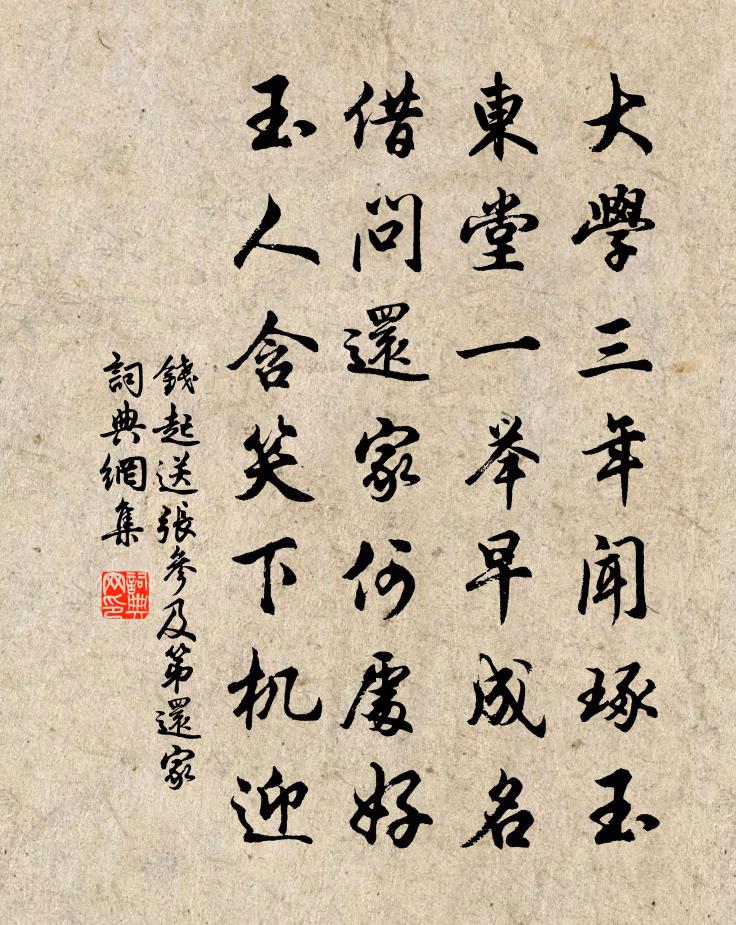 大學三年闻琢玉
東堂一举早成名
借問還家何處好
玉人含笑下机迎
錢起送張參及第還家
詞典網集
詞典网印